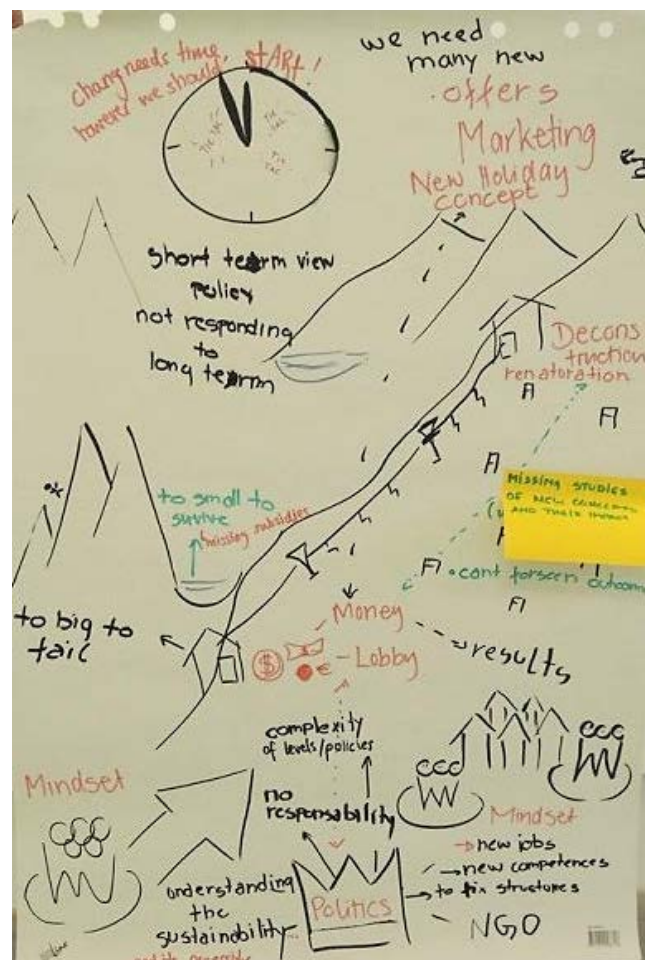 chang needs time,
however we should
START!
we need
many new
offers
Marketing
New Holiday
concept
TIC
TAC
TIC
TAC
short term view
policy
not responding
to
long term
Decons
truction
renatoration
MISSING STUDIES
OF NEW CONCEPTS
AND THEIR IMPACT
to small to
survive
missing subsidies
cant forseen outcom
to big to
fail
Money
Lobby
$
€
results
complexity
of levels/policies
no
responsability
Mindset
Mindset
new jobs
new competences
to fix structures
NGO
understanding
the
sustainability
Politics